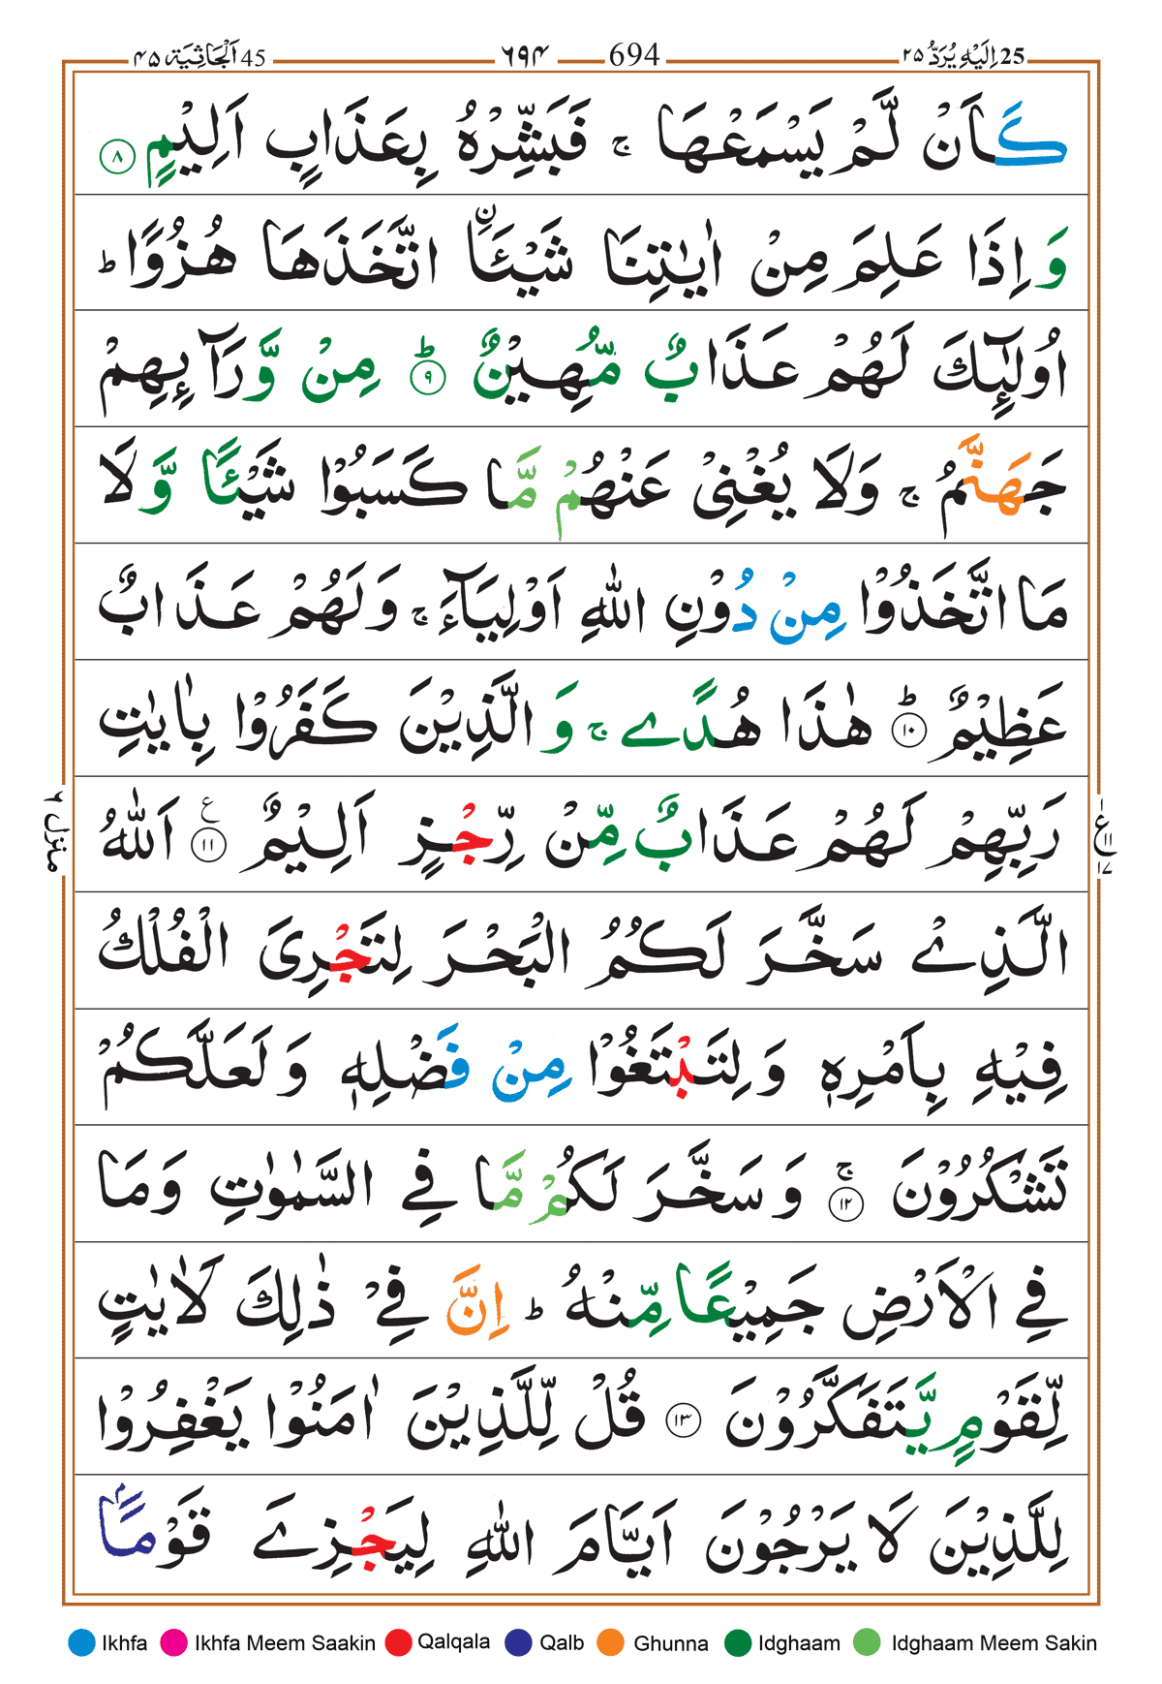 45 اَلْجَاثِيَة ٤٥ ٦٩٤ 694 25 اِلَيْهِ يُرَدُّ ٢٥
كَاَنْ لَّمْ يَسْمَعْهَا ۚ فَبَشِّرْهُ بِعَذَابٍ اَلِيْمٍ ٨
وَاِذَا عَلِمَ مِنْ اٰيٰتِنَا شَيْـَٔاۨ اتَّخَذَهَا هُزُوًا ؕ
اُولٰٓئِكَ لَهُمْ عَذَابٌ مُّهِيْنٌ ؕ ٩ مِنْ وَّرَآئِهِمْ
جَهَنَّمُ ۚ وَلَا يُغْنِىْ عَنْهُمْ مَّا كَسَبُوْا شَيْـًٔا وَّلَا
مَا اتَّخَذُوْا مِنْ دُوْنِ اللّٰهِ اَوْلِيَآءَ ۚ وَلَهُمْ عَذَابٌ
عَظِيْمٌ ؕ ١٠ هٰذَا هُدًے ۚ وَالَّذِيْنَ كَفَرُوْا بِاٰيٰتِ
رَبِّهِمْ لَهُمْ عَذَابٌ مِّنْ رِّجْزٍ اَلِيْمٌ ١١ ع اَللّٰهُ
الَّذِےْ سَخَّرَ لَكُمُ الْبَحْرَ لِتَجْرِىَ الْفُلْكُ
فِيْهِ بِاَمْرِهٖ وَلِتَبْتَغُوْا مِنْ فَضْلِهٖ وَلَعَلَّكُمْ
تَشْكُرُوْنَ ۚ ١٢ وَسَخَّرَ لَكُمْ مَّا فِے السَّمٰوٰتِ وَمَا
فِے الْاَرْضِ جَمِيْعًا مِّنْهُ ؕ اِنَّ فِےْ ذٰلِكَ لَاٰيٰتٍ
لِّقَوْمٍ يَّتَفَكَّرُوْنَ ١٣ قُلْ لِّلَّذِيْنَ اٰمَنُوْا يَغْفِرُوْا
لِلَّذِيْنَ لَا يَرْجُوْنَ اَيَّامَ اللّٰهِ لِيَجْزِےَ قَوْمًاۢ
منزل ٦
ع ١١ ١٧
Ikhfa Ikhfa Meem Saakin Qalqala Qalb Ghunna Idghaam Idghaam Meem Sakin